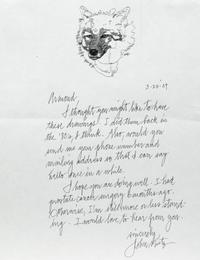 3-20-09
Armond,
I thought you might like to have
these drawings. I did them back in
the '80's, I think. Also, would you
send me your phone number and
mailing address so that I can say
hello once in a while.
I hope you are doing well. I had
prostate cancer surgery 6 months ago.
Otherwise, I'm still more or less stand-
ing. I would love to hear from you.
Sincerely,
John